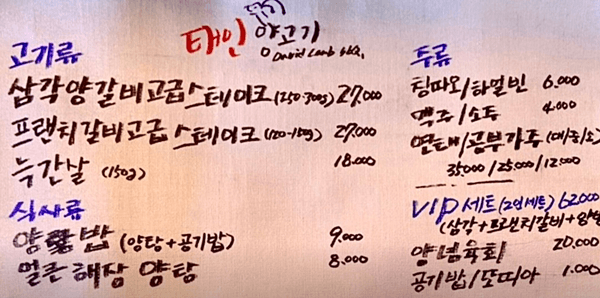 태인 양고기
David Lamb BBQ.
고기류
삼각양갈비고급스테이크 (250-300g) 27.000
프랜치갈비고급스테이크 (120-150g) 27.000
늑간살 (150g) 18.000
식사류
양탕밥 (양탕+공기밥) 9.000
얼큰해장 양탕 8.000
주류
칭따오/하얼빈 6.000
맥주/소주 4.000
연태/공부가주 (대/중/소)
35000/25.000/12.000
VIP세트 (2인세트) 62000
(삼각+프랜치갈비+양
양념육회 20,000
공기밥/또띠아 1.000